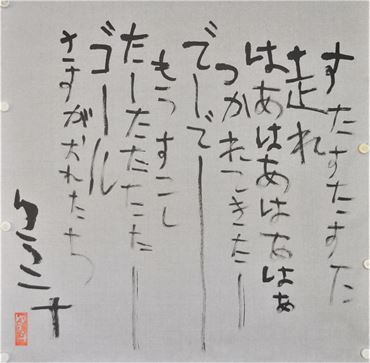 すたすたすた
走れ
はあはあはあはぁ
つかれてきたー
でーでー
もうすこし
たーたたたたー
ゴール
さすがおれたち